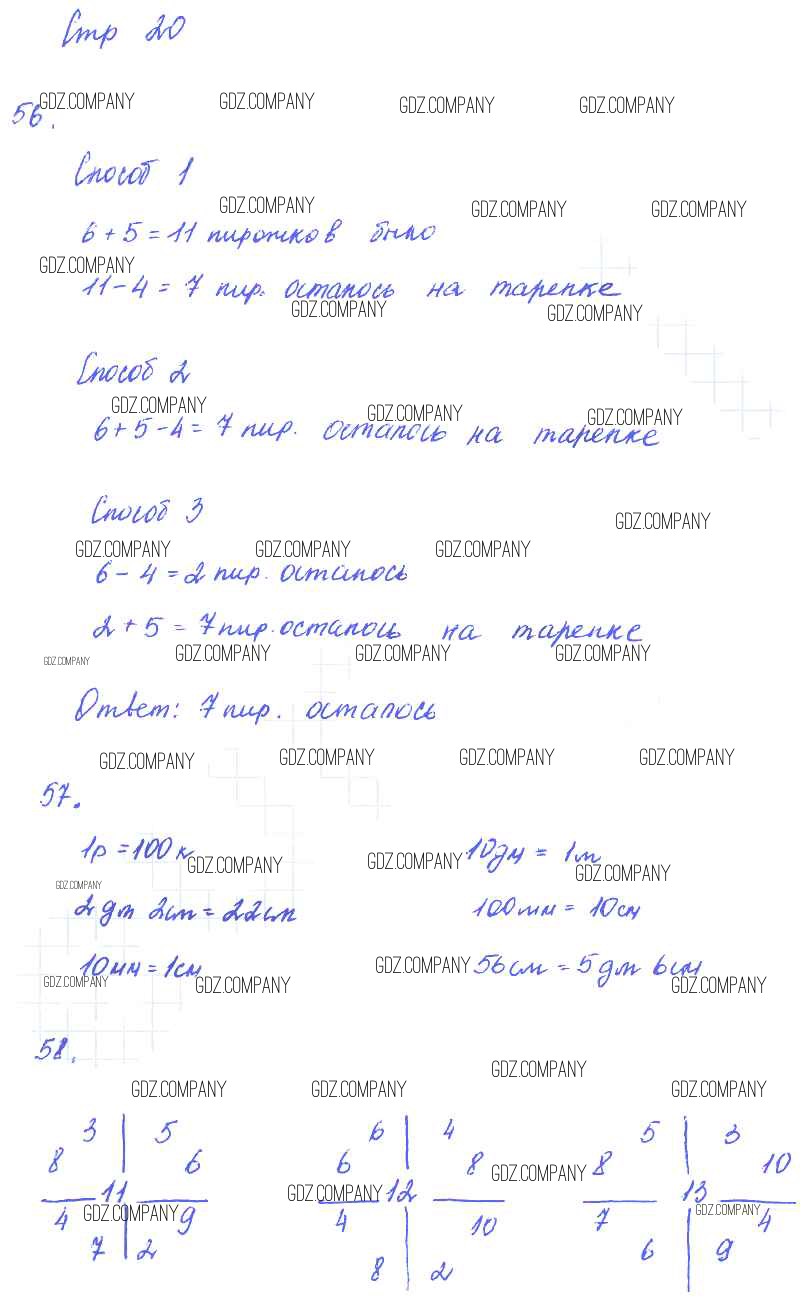 Стр 20
GDZ.COMPANY GDZ.COMPANY GDZ.COMPANY GDZ.COMPANY
56.
Способ 1
GDZ.COMPANY GDZ.COMPANY GDZ.COMPANY
6 + 5 = 11 пирожков было
GDZ.COMPANY
11 - 4 = 7 пир. осталось на тарелке
GDZ.COMPANY GDZ.COMPANY
Способ 2
GDZ.COMPANY GDZ.COMPANY GDZ.COMPANY
6 + 5 - 4 = 7 пир. осталось на тарелке
Способ 3
GDZ.COMPANY
GDZ.COMPANY GDZ.COMPANY GDZ.COMPANY
6 - 4 = 2 пир. осталось
2 + 5 = 7 пир. осталось на тарелке
GDZ.COMPANY GDZ.COMPANY GDZ.COMPANY GDZ.COMPANY
Ответ: 7 пир. осталось
GDZ.COMPANY GDZ.COMPANY GDZ.COMPANY GDZ.COMPANY
57.
1р = 100 к 10дм = 1м
GDZ.COMPANY GDZ.COMPANY GDZ.COMPANY
GDZ.COMPANY
2 дм 2см = 22см 100мм = 10см
10мм = 1см GDZ.COMPANY 56см = 5дм 6см
GDZ.COMPANY GDZ.COMPANY GDZ.COMPANY
58.
GDZ.COMPANY
GDZ.COMPANY GDZ.COMPANY GDZ.COMPANY
3 5 6 4 5 3
8 6 6 8 8 10
GDZ.COMPANY
11 GDZ.COMPANY 12 13
4 GDZ.COMPANY 9 4 10 7 GDZ.COMPANY 4
7 2 8 2 6 9